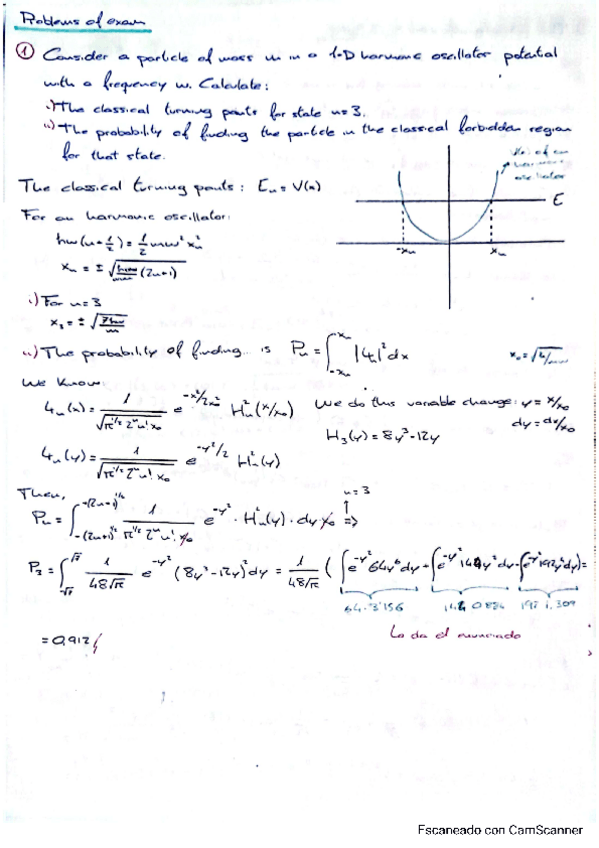 Problems of exam
① Consider a particle of mass m in a 1-D harmonic oscillator potential
with a frequency w. Calculate:
i) The classical turning points for state n=3.
ii) The probability of finding the particle in the classical forbidden region
for that state.
V(x) of an
harmonic
oscillator
The classical turning points: Eₙ = V(x)
E
For an harmonic oscillator:
ħw(n+½) = ½mw²xₙ²
-xₙ xₙ
xₙ = ± √(2n+1)
i) For n=3
x₃ = ±
ii) The probability of finding... is Pₙ = ∫ |ψₙ|² dx
We know
ψₙ(x) = 1/√(π^1/2 2ⁿ n! x₀) e Hₙ²(x/x₀) We do this variable change: y = x/x₀
dy = dx/x₀
H₃(y) = 8y³-12y
ψₙ(y) = 1/√(π^1/2 2ⁿ n! x₀) e^(-y²/2) Hₙ²(y)
Then,
n=3
Pₙ = ∫ 1/(π^1/2 2ⁿ n! x₀) e^(-y²) · Hₙ²(y) · dy x₀ =>
P₃ = ∫ 1/(48√π) e^(-y²) (8y³-12y)² dy = 1/(48√π) (∫e^(-y²) 64y⁶ dy + ∫e^(-y²) 144y² dy - ∫e^(-y²) 192y⁴ dy) =
64·3'156
= 0,912
Lo da el enunciado
Escaneado con CamScanner